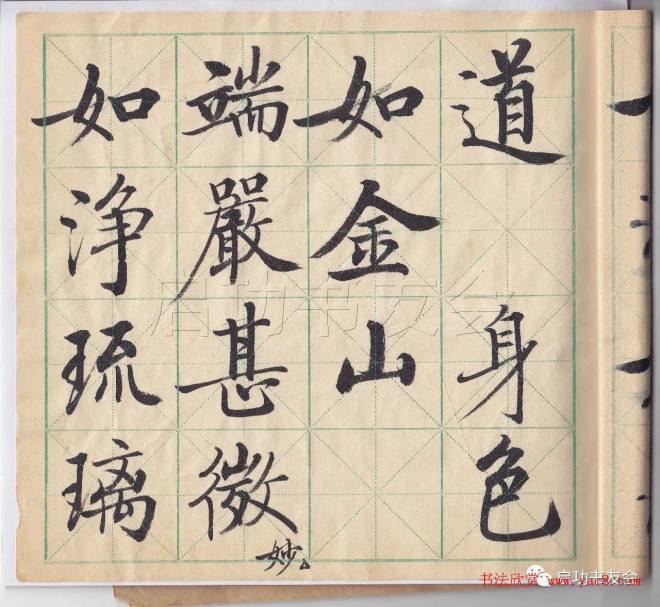 道 身色
如金山
端嚴甚微妙。
如浄琉璃
启功书友会
书法欣赏
启功书友会